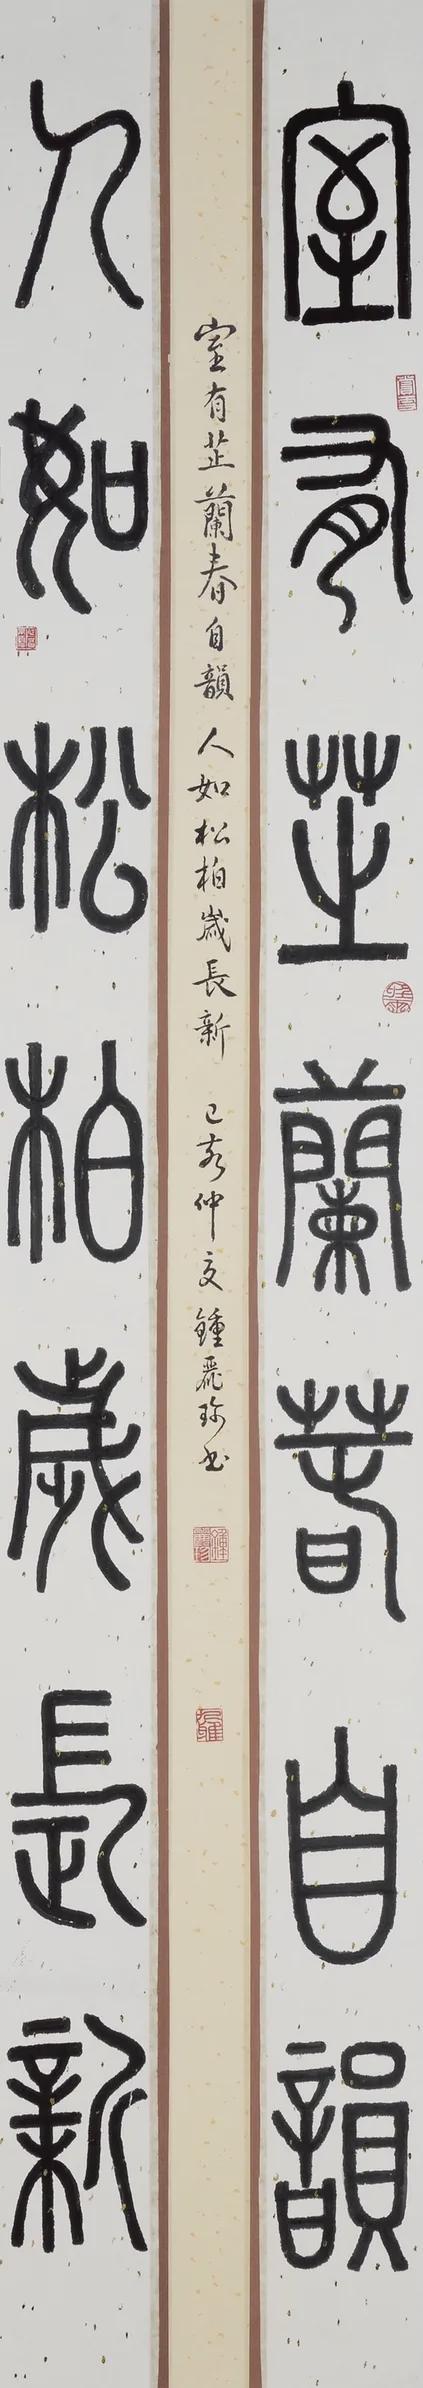 室有芷蘭春自韻
室有芷蘭春自韻 人如松柏歲長新 己亥仲夏 鍾麗珍書
人如松柏歲長新